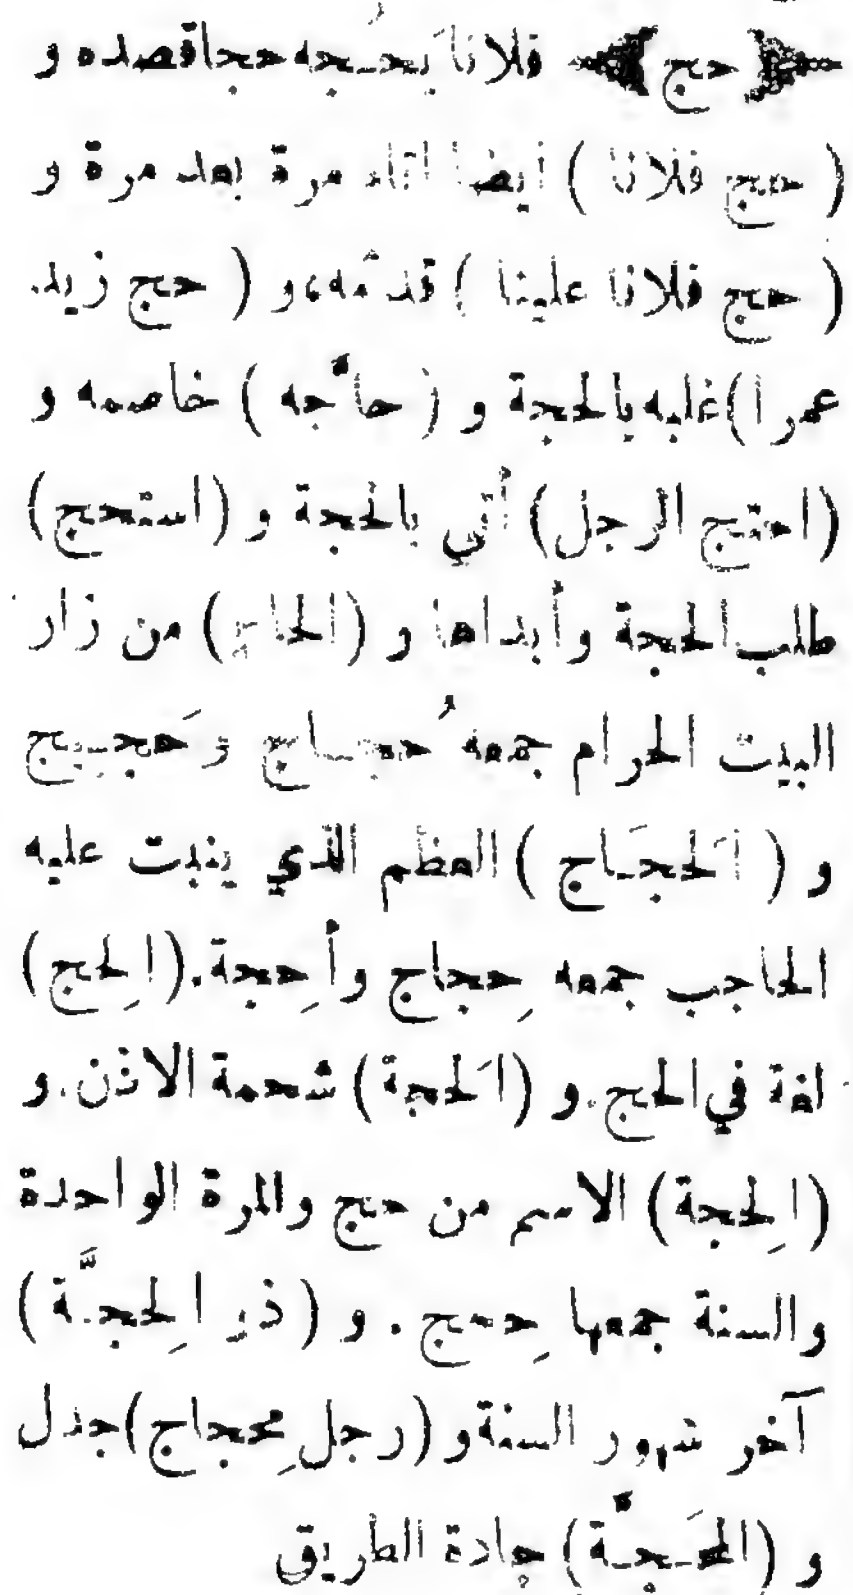 ﴿ حج ﴾ فلانا يَحُـجه حجا قصده و
( حج فلانا ) ايضا اتاه مرة بعد مرة و
( حج فلانا علينا ) قدمه، و ( حج زيد
عمرا ) غلبه بالحجة و ( حاجَّه ) خاصمه و
(احتج الرجل) أتي بالحجة و (استحج)
طلب الحجة وأبداها و (الحاج) من زار
البيت الحرام جمعه حُجـاج وَحجيج
و ( اَلحجَـاج ) العظم الذي ينبت عليه
الحاجب جمعه حِجاج وأحِجة. (اِلحج)
لغة في الحج. و (اَلحجة) شحمة الاذن. و
(اِلحجة) الاسم من حج والمرة الواحدة
والسنة جمعها حِجج . و ( ذو اِلحجـَّة )
آخر شهور السنة و (رجل مِحجاج) جدل
و (المحَـجـَّة) جادة الطريق